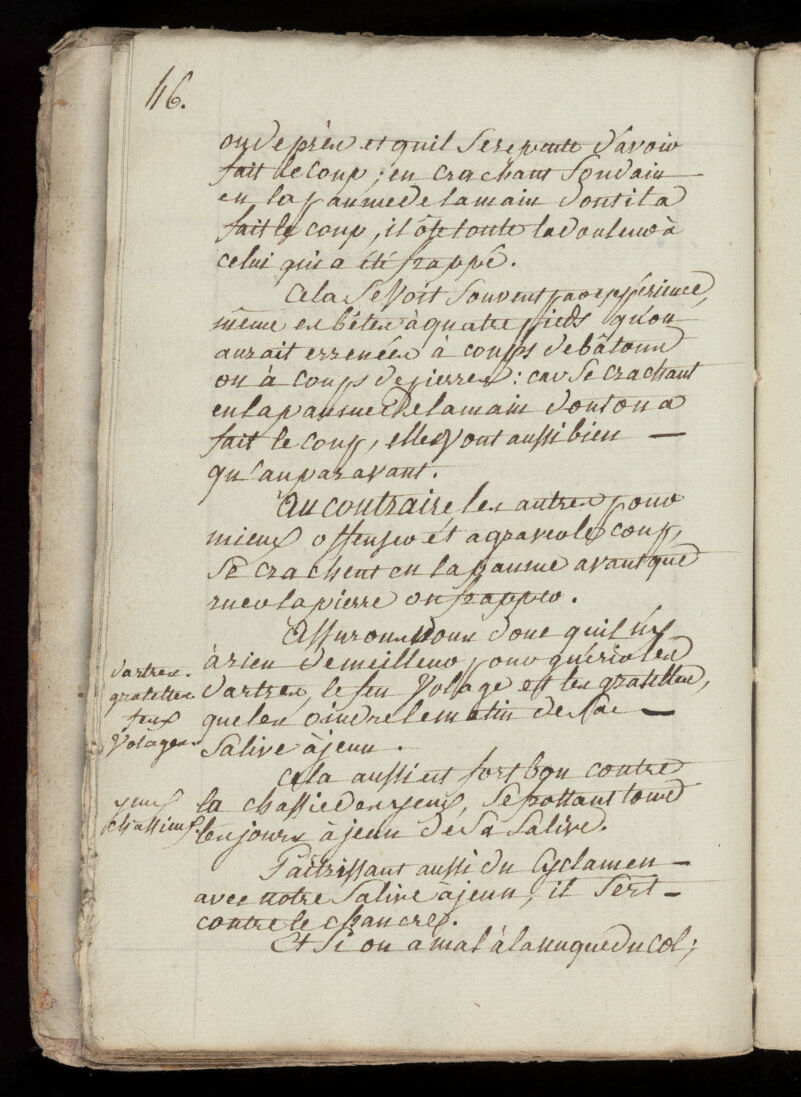 46.
ou de près et quil se repente d'avoir
fait le coup; en crachant soudain
en la paume de la main dont il a
fait le coup, il ôte toute la douleur à
celui qui a été frappé.
Cela se voit souvent par expérience,
même es bêtes à quatre pieds qu'on
aurait errenées à coups de bâtons
ou à coups de pierres : car se crachant
en la paume de la main dont on a
fait le coup, elles vont aussi bien
qu'auparavant.
Au contraire les autres pour
mieux offenser et agraver le coup,
se crachent en la paume avant que
ruer la pierre ou frapper.
Assurons nous donc quil ny
à rien de meilleur pour guérir les
dartres, le feu volage et les gratelles,
que les oindre le matin de sa
salive à jeun.
dartres.
gratelles
feux
volages
Cela aussi est fort bon contre
la chassie des yeux, se frottant tous
les jours à jeun de sa salive.
yeux
chassieux.
Paitrissant aussi du Cyclamen
avec notre salive à jeun, il sert
contre le chancre.
Et si on a mal à la nuque du col;